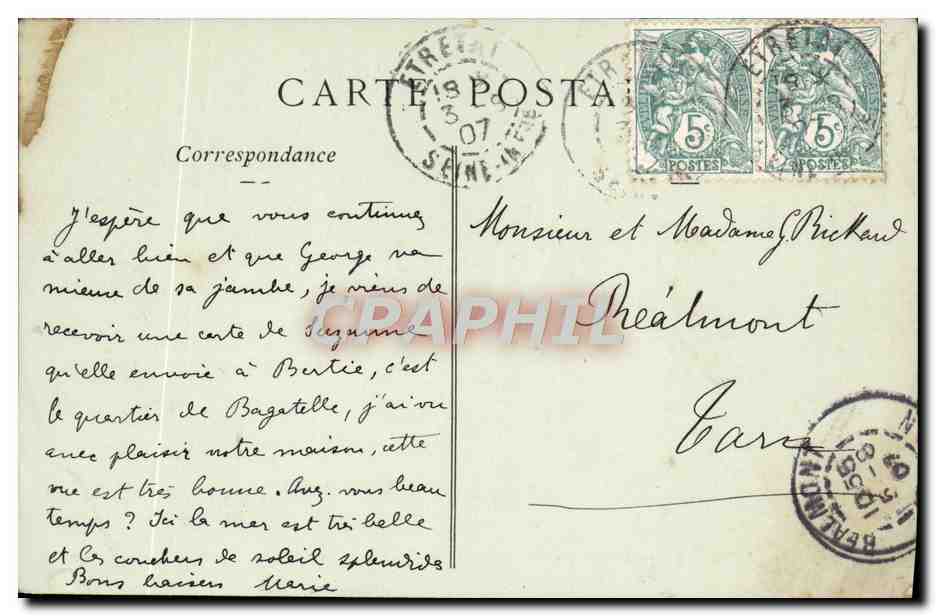 CARTE POSTA
Correspondance
ETRETAT
18
3 - 8
07
SEINE-INFRE
5c
POSTES
5c
POSTES
J'espère que vous continuez
à aller bien et que George va
mieux de sa jambe, je viens de
recevoir une carte de Suzanne
qu'elle envoie à Bertie, c'est
le quartier de Bagatelle, j'ai vu
avec plaisir notre maison, cette
vue est très bonne. Avez-vous beau
temps ? Ici la mer est très belle
et les couchers de soleil splendides
Bons baisers Marie
Monsieur et Madame G. Rickard
Réalmont
Tarn
REALMONT
CPAPHIL